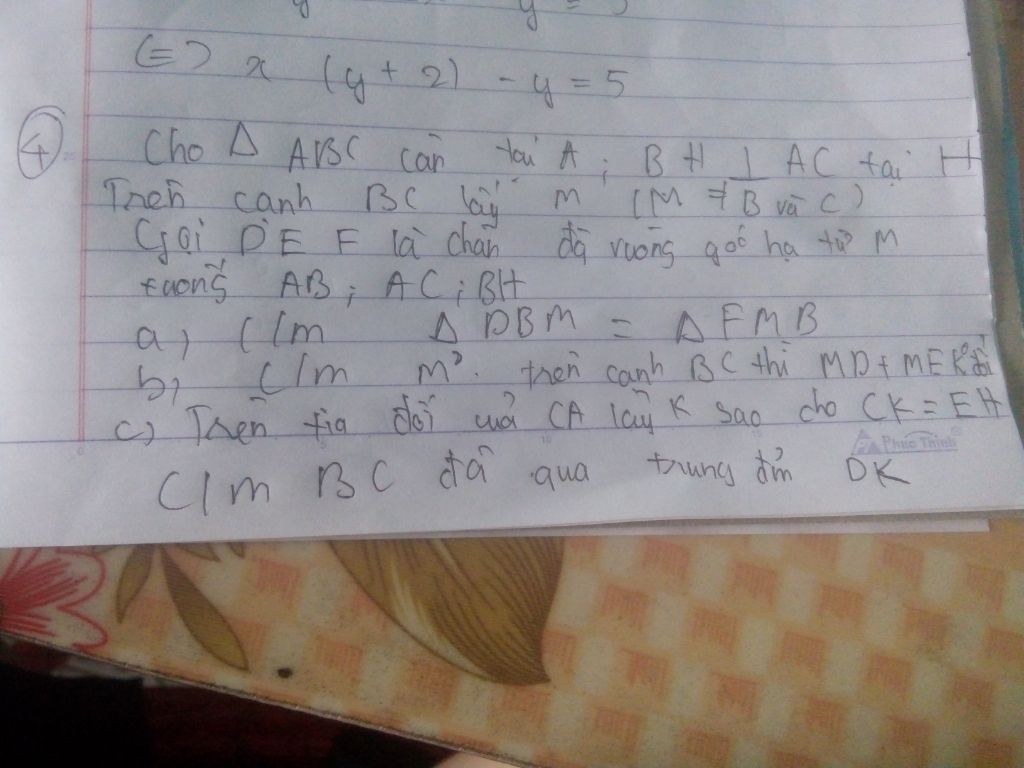 y = 5
(=) x (y + 2) - y = 5
4
Cho Δ ABC cân tại A ; BH ⊥ AC tại H
Trên cạnh BC lấy M (M ≠ B và C)
Gọi D E F là chân đg vuông góc hạ từ M
xuống AB ; AC ; BH
a) C/m Δ DBM = Δ FMB
b) C/m M trên cạnh BC thì MD + ME K đổi
c) Trên tia đối của CA lấy K sao cho CK = EH
Phúc Thịnh
C/m BC đi qua trung đ'm DK